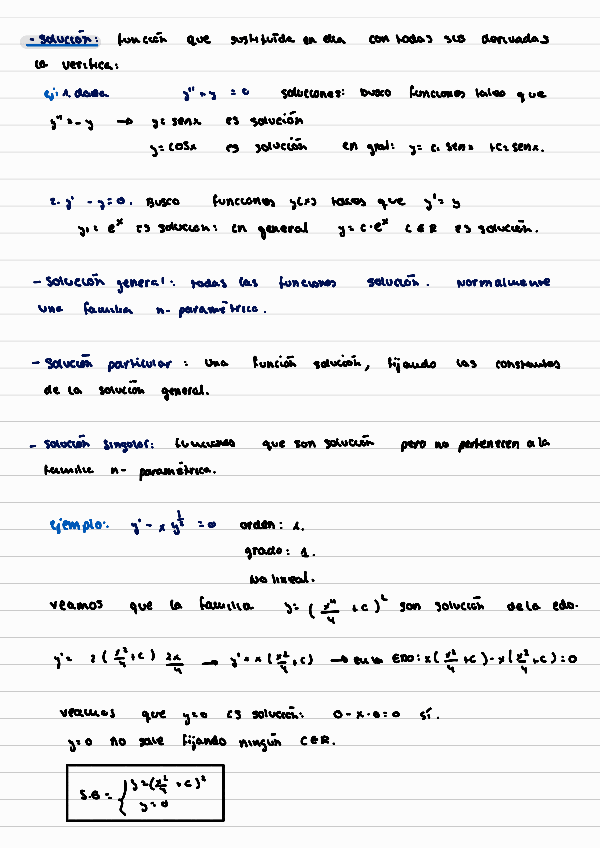 - Solución: función que sustituída en ella con todas sus derivadas
la verifica:
ej: 1. dada y'' + y = 0 soluciones: busco funciones tales que
y'' = - y → y = senx es solución
y = cosx es solución en gral: y = c₁ senx + c₂ senx.
2. y' - y = 0. Busco funciones y(x) tales que y' = y
y₁ = eˣ es solución: en general y = c·eˣ c ∈ R es solución.
- Solución general: todas las funciones solución. Normalmente
una familia n- paramétrica.
- Solución particular : una función solución, fijando las constantes
de la solución general.
- Solución singular: funciones que son solución pero no pertenecen a la
familia n- paramétrica.
ejemplo: y' - x y^{1/2} = 0 orden: 1.
grado: 1.
No lineal.
veamos que la familia y = (x²/4 + c)² son solución de la edo.
y' = 2 (x²/4 + c) 2x/4 → y' = x (x²/4 + c) → en la EDO: x(x²/4 + c) - x(x²/4 + c) = 0
veamos que y=0 es solución: 0 - x·0 = 0 sí.
y=0 no sale fijando ningún C∈R.
S.G = { y = (x²/4 + c)²
y = 0